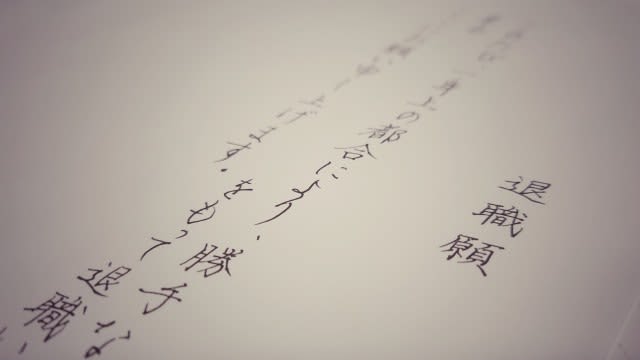 退職願
一身上の都合により、勝手な
げます。をもって退職い